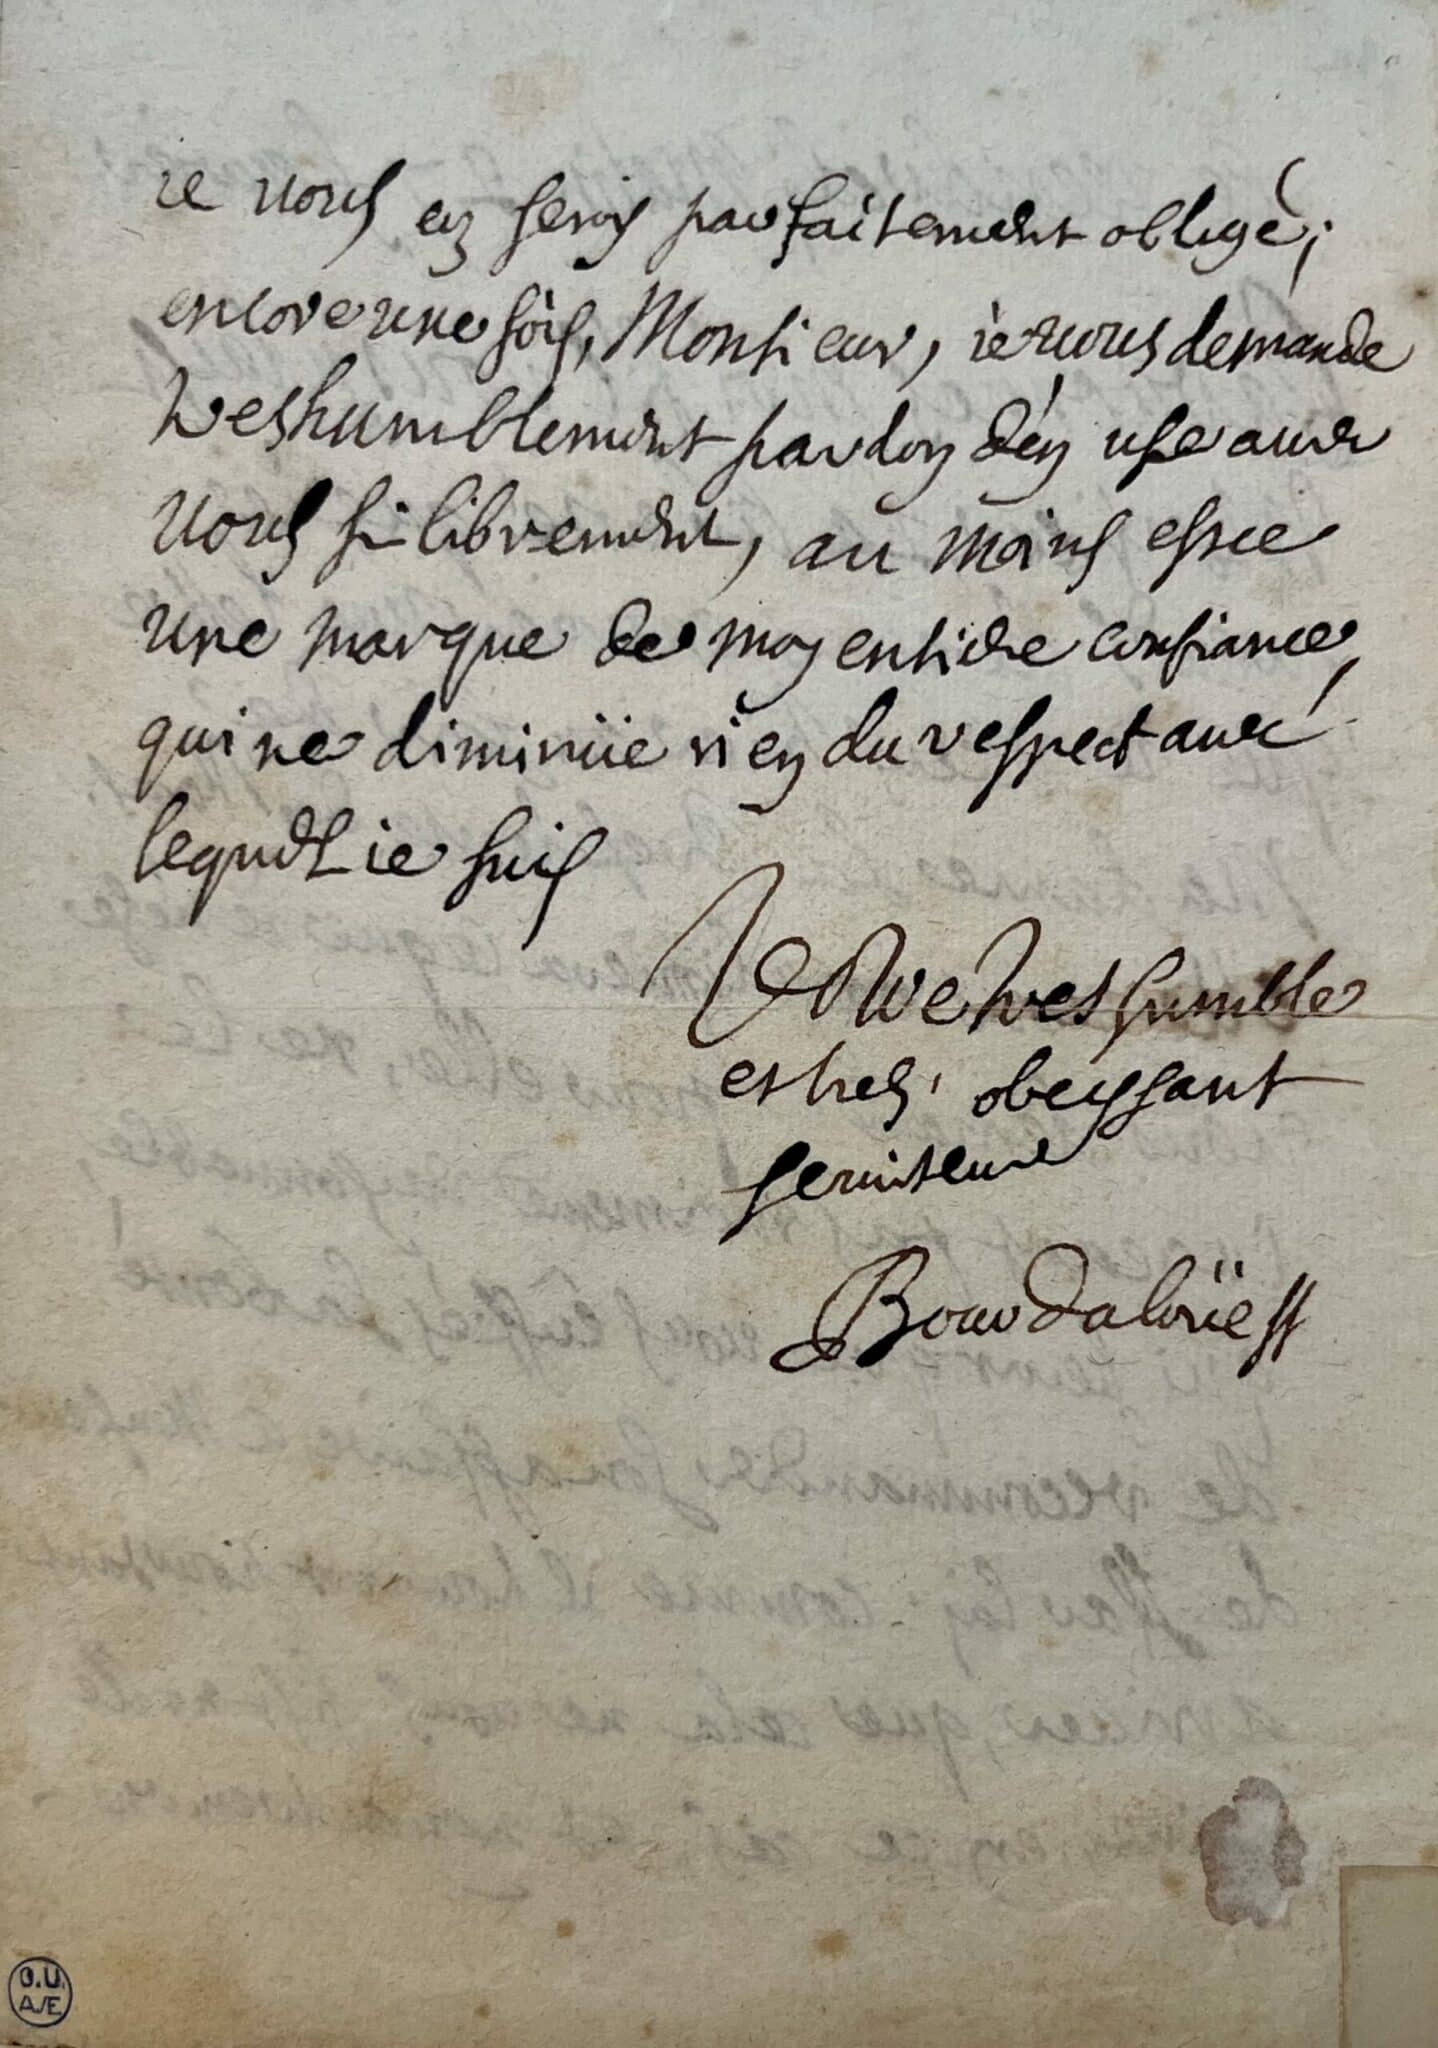 ie vous en serois parfaitement obligé;
encore une fois, Monsieur, ie vous demande
tres humblement pardon d'en user avec
vous si librement, au moins esce
une marque de mon entiere confiance,
qui ne diminüe rien du respect avec
lequel ie suis
Vostre tres humble
et tres obeyssant
serviteur
Bourdaloüe
O.U.
A/E